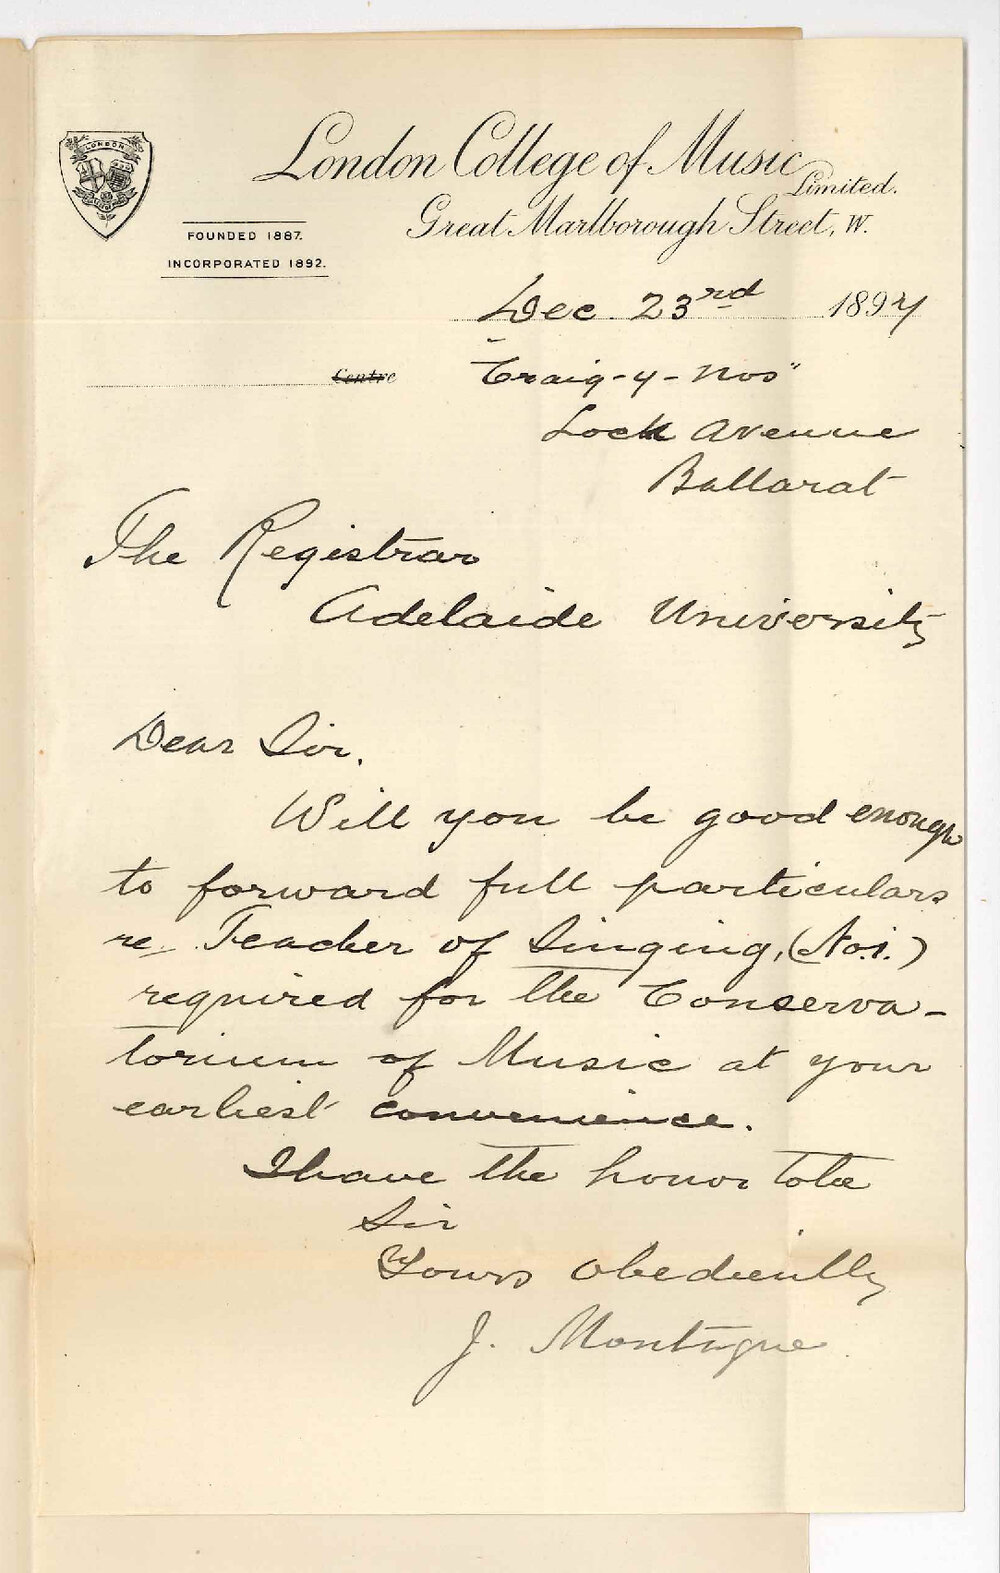 LONDON
London College of Music
Limited.
Great Marlborough Street, W.
FOUNDED 1887.
INCORPORATED 1892.
Dec. 23rd 1897
Centre
"Craig-y-Nos"
Lock Avenue
Ballarat
The Registrar
Adelaide University
Dear Sir.
Will you be good enough
to forward full particulars
re Teacher of Singing, (No. 1.)
required for the Conserva-
torium of Music at your
earliest convenience.
I have the honor to be
Sir
Yours obediently
J. Montague